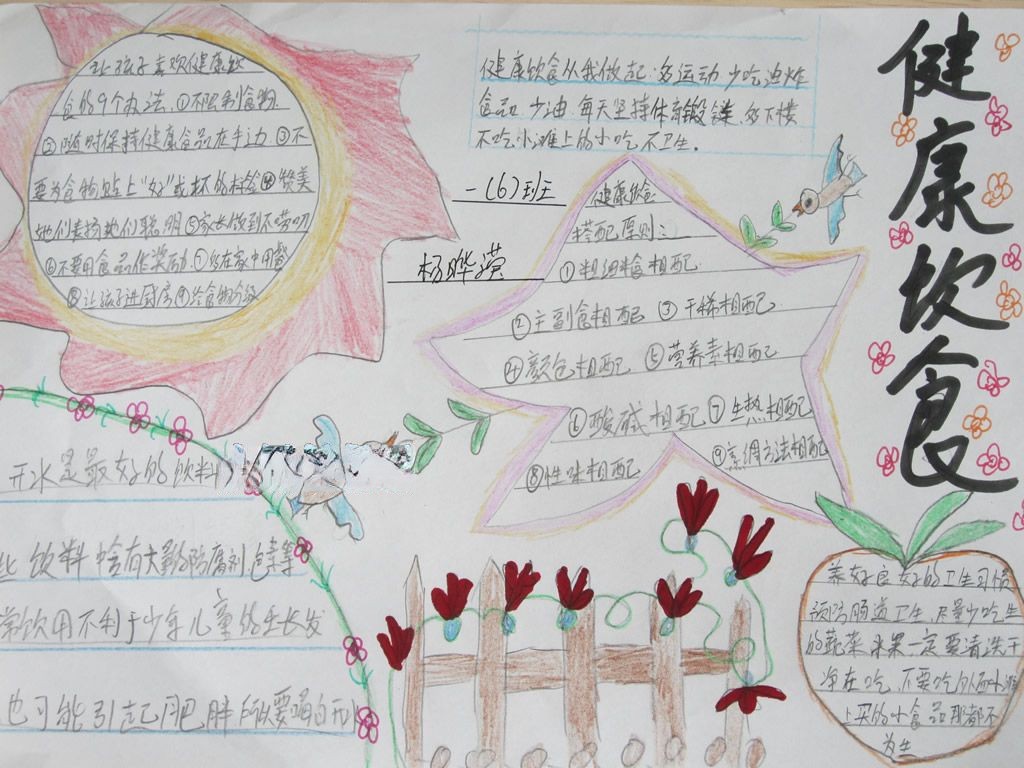 健康饮食
让孩子喜欢健康饮
食的9个办法.①不限制食物.
②随时保持健康食品在手边③不
要为食物贴上"好"或坏的标签④赞美
她们表扬她们聪明⑤家长做到不唠叨
⑥不要用食品作奖励.⑦多在家中用餐
⑧让孩子进厨房⑨给食物分级
健康饮食从我做起:多运动 少吃油炸
食品.少油.每天坚持体育锻 .多下楼
不吃小滩上的小吃.不卫生.
一(6)班
杨晔
健康饮食
搭配原则:
①粗细粮相配.
②主副食相配 ③干稀相配
④颜色相配 ⑤营养素相配
⑥酸碱相配⑦生热相配
⑧性味相配 ⑨烹调方法相配
开水是最好的饮料
些饮料含有大 防腐剂
常饮用不利于少年儿童的生长发
也可能引起肥胖所以要喝白开
养好良好的卫生习惯
预防肠道卫生.尽量少吃生
的蔬菜.水果一定要清洗干
净在吃.不要吃外面小滩
上买的小食品那都不
为生